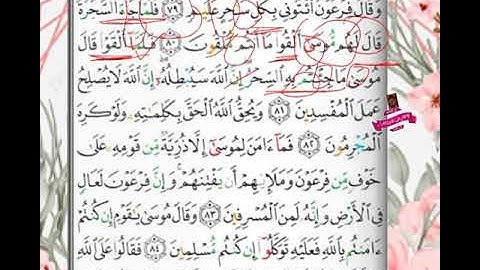 وَقَالَ فِرْعَوْنُ ٱئْتُونِى بِكُلِّ سَٰحِرٍ عَلِيمٍ ٧٩ فَلَمَّا جَآءَ ٱلسَّحَرَةُ
قَالَ لَهُم مُّوسَىٰٓ أَلْقُوا۟ مَآ أَنتُم مُّلْقُونَ ٨٠ فَلَمَّآ أَلْقَوْا۟ قَالَ
مُوسَىٰ مَا جِئْتُم بِهِ ٱلسِّحْرُ إِنَّ ٱللَّهَ سَيُبْطِلُهُۥٓ إِنَّ ٱللَّهَ لَا يُصْلِحُ
عَمَلَ ٱلْمُفْسِدِينَ ٨١ وَيُحِقُّ ٱللَّهُ ٱلْحَقَّ بِكَلِمَٰتِهِۦ وَلَوْ كَرِهَ
ٱلْمُجْرِمُونَ ٨٢ فَمَآ ءَامَنَ لِمُوسَىٰٓ إِلَّا ذُرِّيَّةٌ مِّن قَوْمِهِۦ عَلَىٰ
خَوْفٍ مِّن فِرْعَوْنَ وَمَلَإِي۟هِمْ أَن يَفْتِنَهُمْ وَإِنَّ فِرْعَوْنَ لَعَالٍ
فِى ٱلْأَرْضِ وَإِنَّهُۥ لَمِنَ ٱلْمُسْرِفِينَ ٨٣ وَقَالَ مُوسَىٰ يَٰقَوْمِ إِن كُنتُمْ
ءَامَنتُم بِٱللَّهِ فَعَلَيْهِ تَوَكَّلُوٓا۟ إِن كُنتُم مُّسْلِمِينَ ٨٤ فَقَالُوا۟ عَلَى ٱللَّهِ